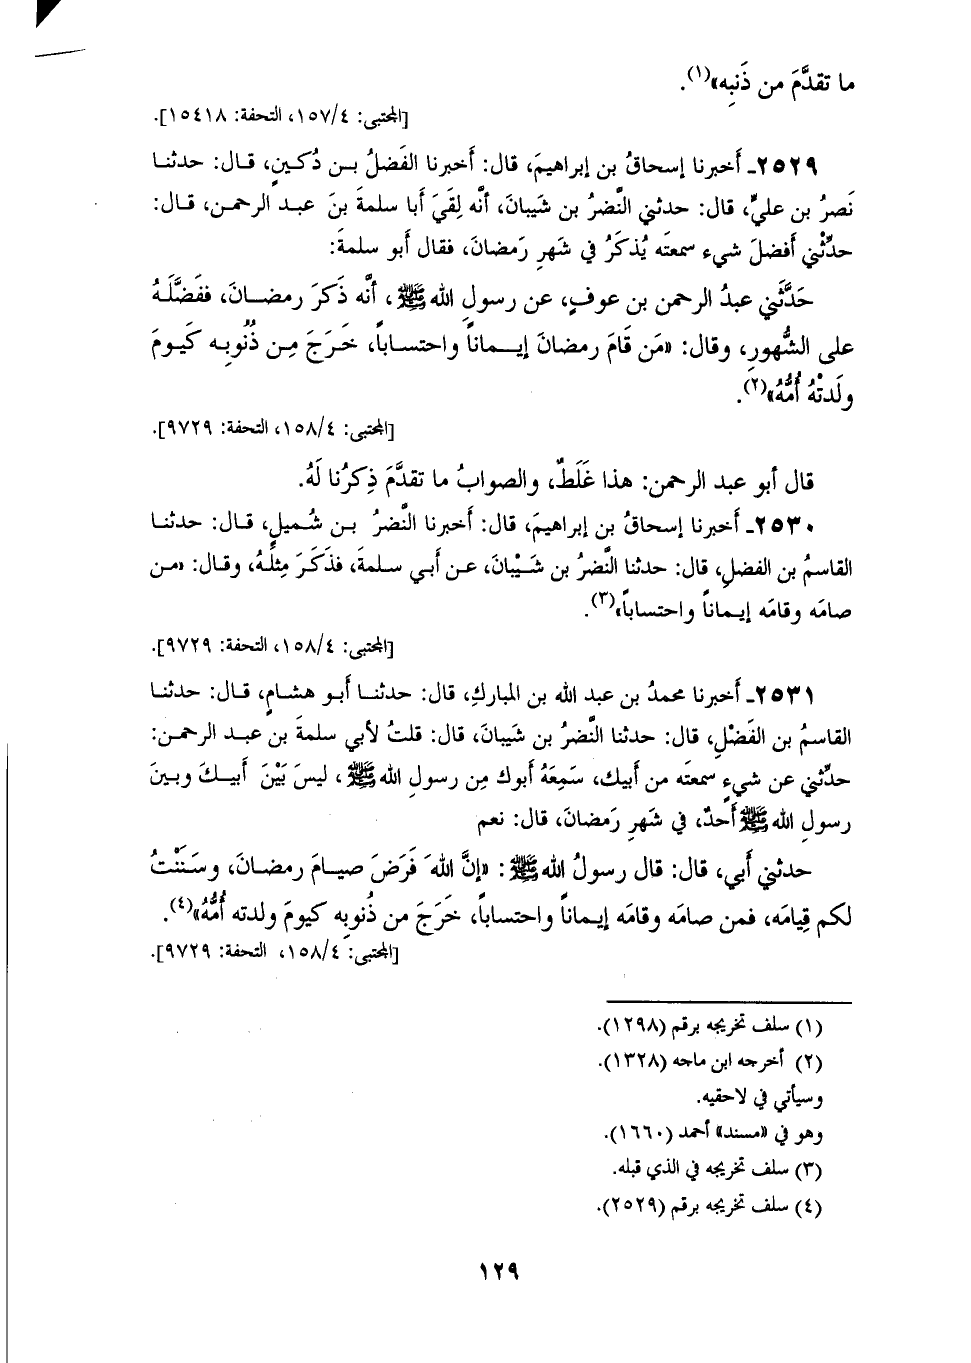 ما تقدَّمَ من ذَنبِه»(١).
[المجتبى: ١٥٧/٤، التحفة: ١٥٤١٨].
٢٥٢٩ـ أَخبرنا إسحاقُ بن إبراهيمَ، قال: أَخبرنا الفَضلُ بن دُكينٍ، قال: حدثنا
نَصرُ بن عليٍّ، قال: حدثني النَّضرُ بن شَيبانَ، أنَّه لِقيَ أَبا سلمةَ بنَ عبد الرحمن، قال:
حدِّثْني أَفضلَ شيء سمعتَه يُذكَرُ في شَهرِ رَمضانَ، فقال أَبو سلمةَ:
حَدَّثَني عبدُ الرحمن بن عوفٍ، عن رسولِ الله ﷺ، أنَّه ذَكرَ رمضانَ، ففَضَّلَهُ
على الشُّهورِ، وقال: «مَن قَامَ رمضانَ إيماناً واحتساباً، خَرَجَ مِن ذُنُوبِه كَيومَ
ولَدتْهُ أُمُّهُ»(٢).
[المجتبى: ١٥٨/٤، التحفة: ٩٧٢٩].
قال أبو عبد الرحمن: هذا غَلَطٌ، والصوابُ ما تقدَّمَ ذِكرُنا لَهُ.
٢٥٣٠ـ أَخبرنا إسحاقُ بن إبراهيمَ، قال: أَخبرنا النَّضرُ بن شُميلٍ، قال: حدثنا
القاسمُ بن الفضلِ، قال: حدثنا النَّضرُ بن شَيْبانَ، عن أَبي سلمةَ، فذَكَرَ مِثلَهُ، وقال: «من
صامَه وقامَه إيماناً واحتساباً»(٣).
[المجتبى: ١٥٨/٤، التحفة: ٩٧٢٩].
٢٥٣١ـ أَخبرنا محمدُ بن عبد الله بن المباركِ، قال: حدثنا أَبو هشامٍ، قال: حدثنا
القاسمُ بن الفَضْلِ، قال: حدثنا النَّضرُ بن شَيبانَ، قال: قلتُ لأَبي سلمةَ بن عبد الرحمن:
حدِّثْني عن شيءٍ سمعتَه من أَبيك، سَمِعَهُ أَبوك مِن رسولِ الله ﷺ، ليسَ بَيْنَ أَبيكَ وبينَ
رسولِ الله ﷺ أَحدٌ، في شَهرِ رَمضانَ، قال: نعم
حدثني أَبي، قال: قال رسولُ الله ﷺ: «إنَّ اللهَ فَرَضَ صيامَ رمضانَ، وسَنَنْتُ
لكم قِيامَه، فمن صامَه وقامَه إيماناً واحتساباً، خَرَجَ من ذُنوبِه كيومَ ولدته أُمُّهُ»(٤).
[المجتبى: ١٥٨/٤، التحفة: ٩٧٢٩].
(١) سلف تخريجه برقم (١٢٩٨).
(٢) أخرجه ابن ماجه (١٣٢٨).
وسيأتي في لاحقيه.
وهو في «مسند» أحمد (١٦٦٠).
(٣) سلف تخريجه في الذي قبله.
(٤) سلف تخريجه برقم (٢٥٢٩).
١٢٩